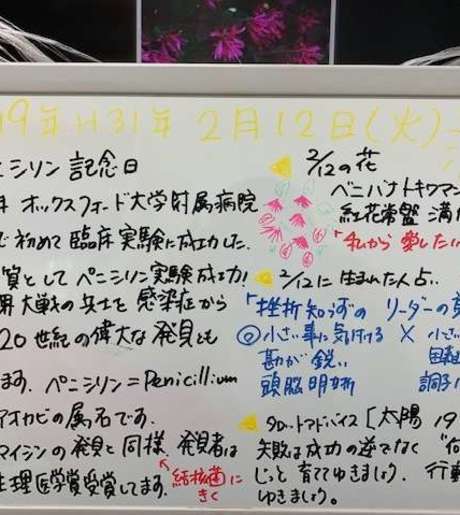 19年 H31年 2月12日(火)
ニシリン 記念日
オックスフォード大学附属病院
で 初めて 臨床実験に成功した.
質として ペニシリン 実験成功!
界大戦の兵士を 感染症から
20世紀の偉大な 発見とも
ます. ペニシリン = Penicillium
アオカビの属名です.
マイシンの発見と同様. 発見者は
生理医学賞受賞してます.
結核菌に
きく
2/12の花
ベニバナトキワマン
紅花常盤 満
「私から 愛したい
2/12に 生まれた人 占い
「挫折知らずの リーダーの
◎小さい事に気付ける × 小さい
勘が 鋭い
頭脳明晰 調子に
タロットアドバイス [太陽 19
失敗は成功の逆でなく "何
じっと 育ててゆきましょう. 行動
ゆきましょう。